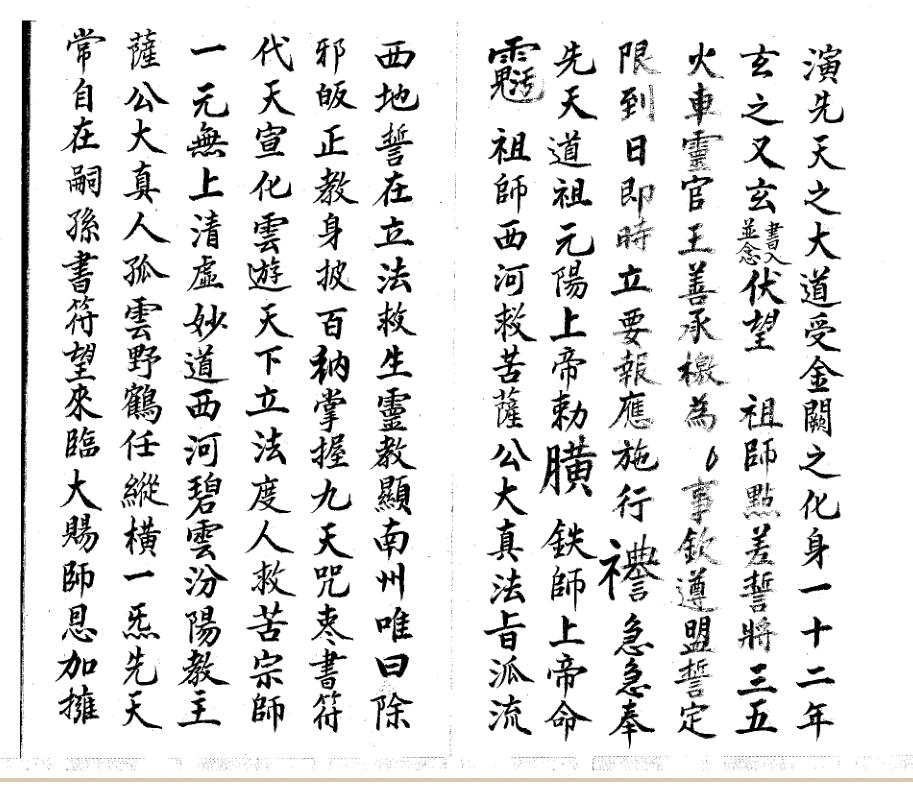 演先天之大道受金闕之化身一十二年
玄之又玄書入並念伏望　祖師點差誓將三五
火車靈官王善承檄為　事欽遵盟誓定
限到日即時立要報應施行　急急奉
先天道祖元陽上帝勅　鉄師上帝命
祖師西河救苦薩公大真法旨派流
西地誓在立法救生靈教顯南州唯曰除
邪皈正教身披百衲掌握九天咒枣書符
代天宣化雲遊天下立法度人救苦宗師
一元無上清虛妙道西河碧雲汾陽教主
薩公大真人孤雲野鶴任縱橫一炁先天
常自在嗣孫書符望來臨大賜師恩加擁